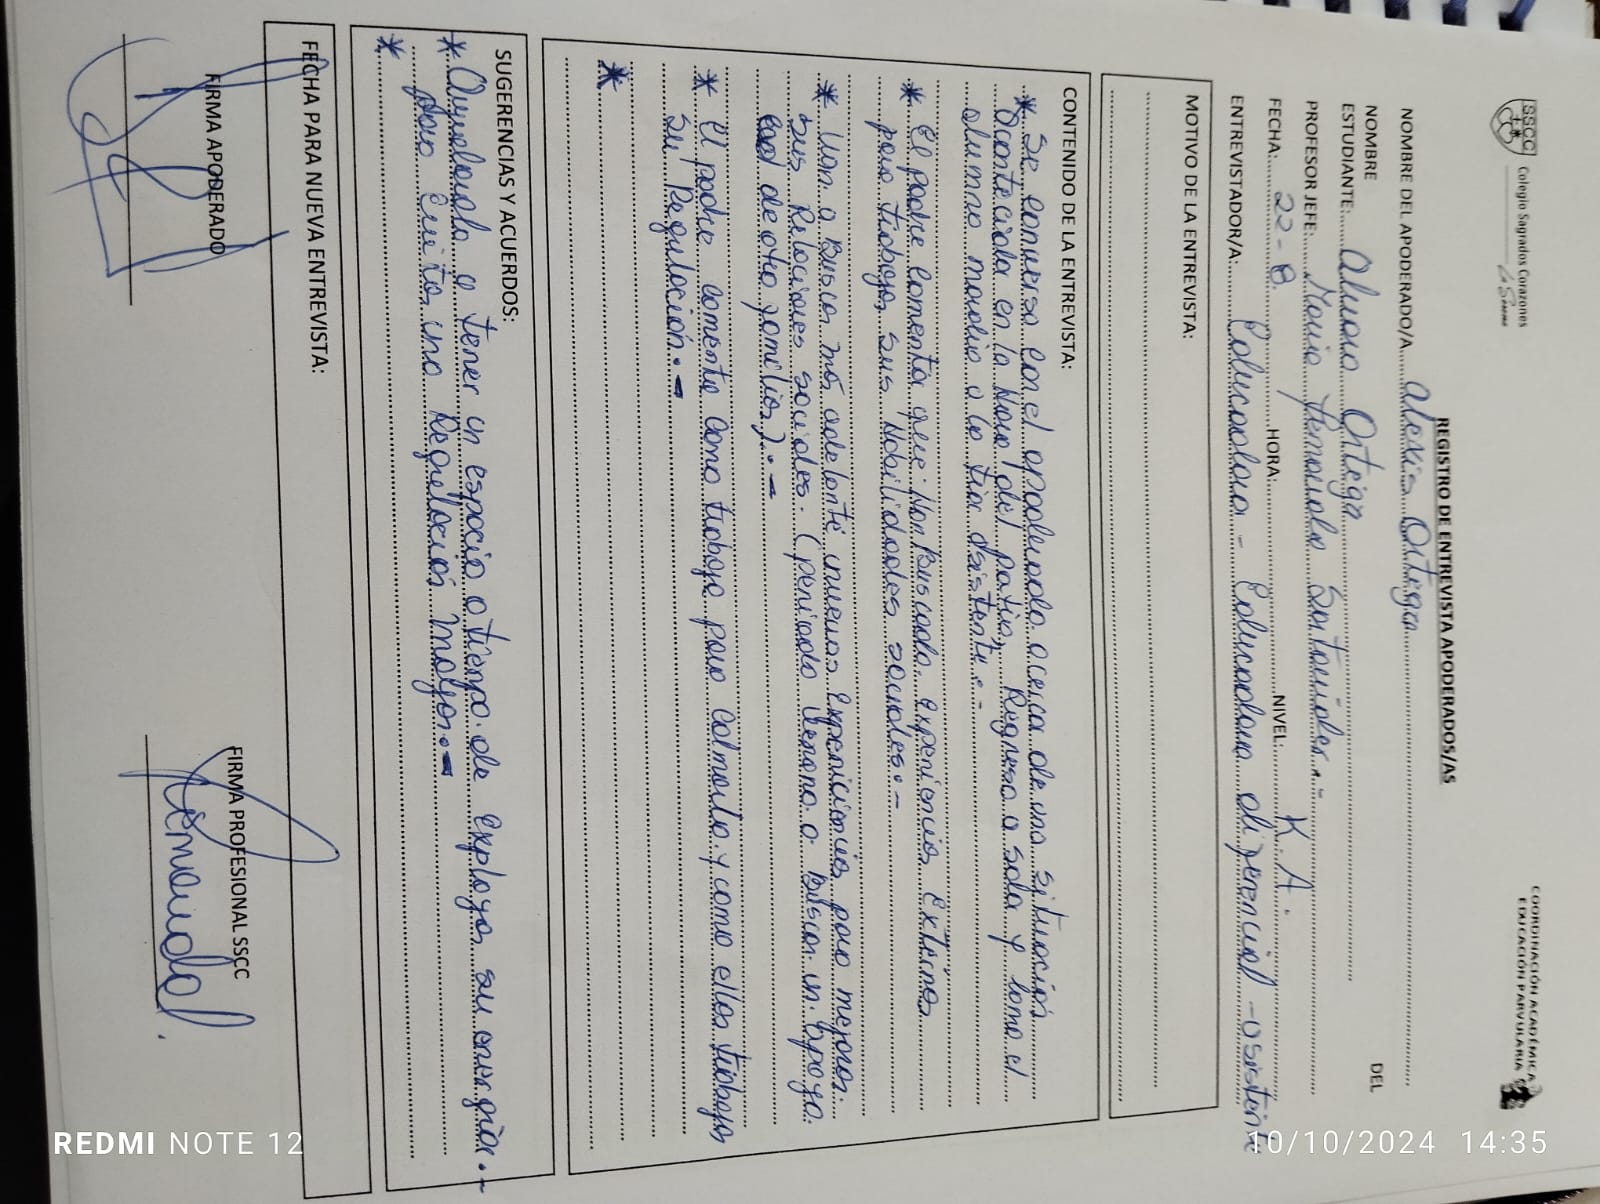 SSCC
Colegio Sagrados Corazones
COORDINACIÓN ACADÉMICA
EDUCACIÓN PARVULARIA
REGISTRO DE ENTREVISTA APODERADOS/AS
NOMBRE DEL APODERADO/A Alexis Ortega
NOMBRE DEL
ESTUDIANTE: Alvaro Ortega
PROFESOR JEFE: Santander.-
FECHA: 22-8 HORA: NIVEL: K.A.
ENTREVISTADOR/A: Educadora - Educadora diferencial - asistente
MOTIVO DE LA ENTREVISTA:
CONTENIDO DE LA ENTREVISTA:
* Se conversa con el apoderado acerca de una situación
acontecida en la hora del patio, Regreso a sala y como el
alumno mordio a la tia asistente.-
* El padre comenta que han Buscado experiencias Externas
para trabajar sus Habilidades sociales.-
* Van a Buscar más adelante nuevas Experiencias para mejorar
sus Relaciones sociales. (periodo Verano a Buscar un apoyo
de otro familiar).-
* El padre comenta como trabaja para calmarlo y como ellos trabajan
su Regulación.-
*
SUGERENCIAS Y ACUERDOS:
* Ayudarlo a tener un espacio o tiempo de explayar su energía.-
para Evitar una Regulación mayor.-
*
FECHA PARA NUEVA ENTREVISTA:
FIRMA APODERADO
FIRMA PROFESIONAL SSCC
REDMI NOTE 12
10/10/2024 14:35